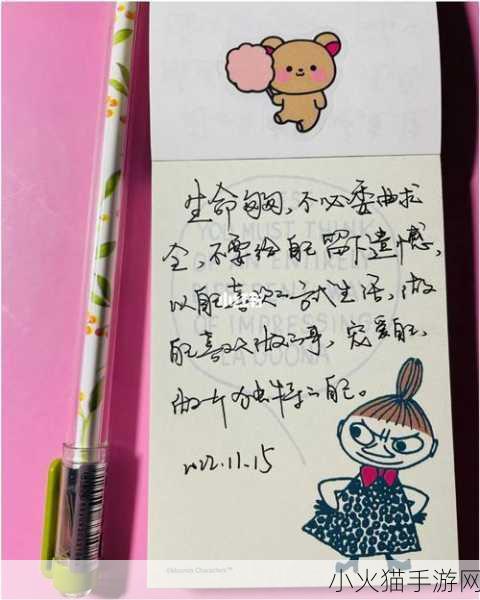 生命匆匆,不必委曲求
全,不要给自己留下遗憾,
以自己喜欢的方式生活,做
自己喜欢做的事,宠爱自己,
做一个独特的自己。
2022.11.15
YOU MUST THINK
OF IMPRESSING
LA GOONA
©Moomin Characters™
小火猫手游网